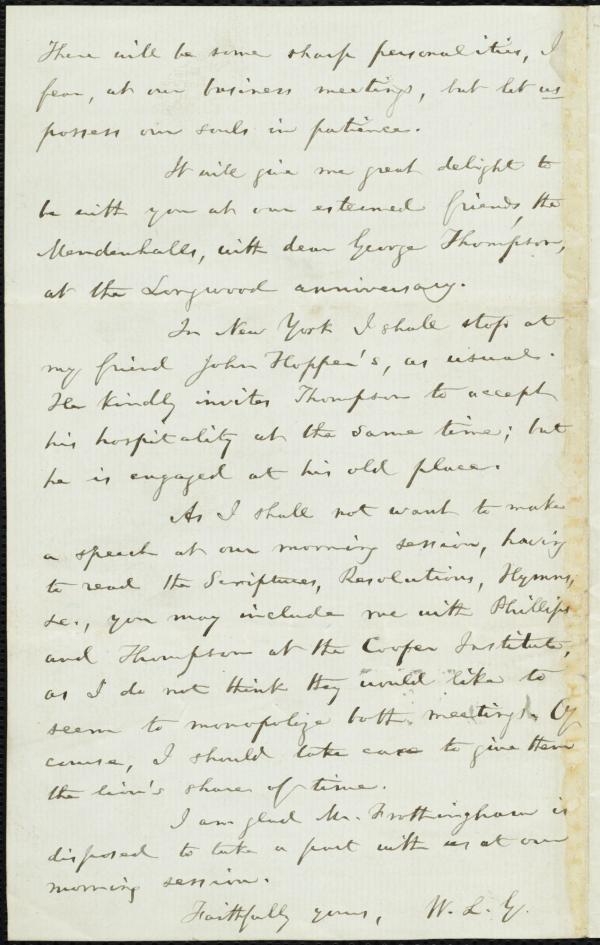 There will be some sharp personalities, I
fear, at our business meetings, but let us
possess our souls in patience.
It will give me great delight to
be with you at our esteemed friends, the
Mendenhalls, with dear George Thompson,
at the Longwood anniversary.
In New York I shall stop at
my friend John Hopper's, as usual.
He kindly invites Thompson to accept
his hospitality at the same time; but
he is engaged at his old place.
As I shall not want to make
a speech at our morning session, having
to read the Scriptures, Resolutions, Hymns,
&c., you may include me with Phillips
and Thompson at the Cooper Institute,
as I do not think they would like to
seem to monopolize both meetings. Of
course, I should take care to give them
the lion's share of time.
I am glad Mr. Frothingham is
disposed to take a part with us at our
morning session.
Faithfully yours, W. L. G.